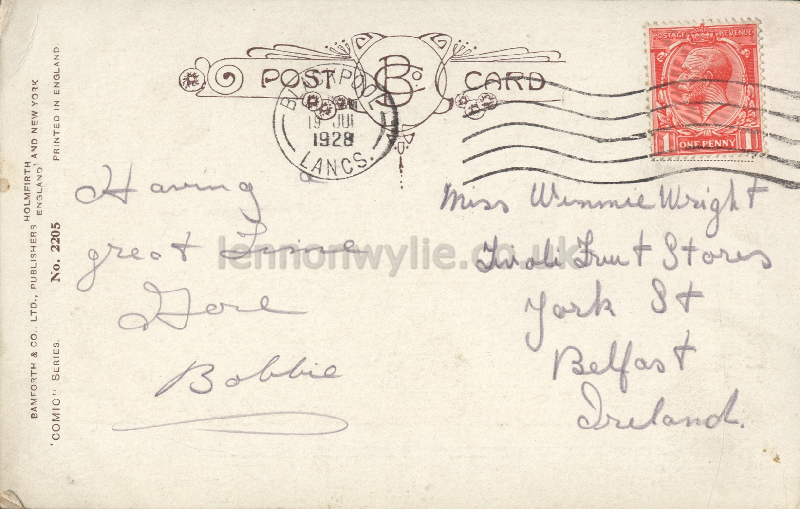 BAMFORTH & CO. LTD., PUBLISHERS HOLMFIRTH ENGLAND AND NEW YORK
"COMIC" SERIES. No. 2205 PRINTED IN ENGLAND
POST CARD
B Co
BLACKPOOL
19 JUL
1928
LANCS.
POSTAGE REVENUE
1 ONE PENNY 1
Having a
great Time
Gore
Bobbie
Miss Winnie Wright
Tivoli Fruit Stores
York St
Belfast
Ireland.
lennonwylie.co.uk